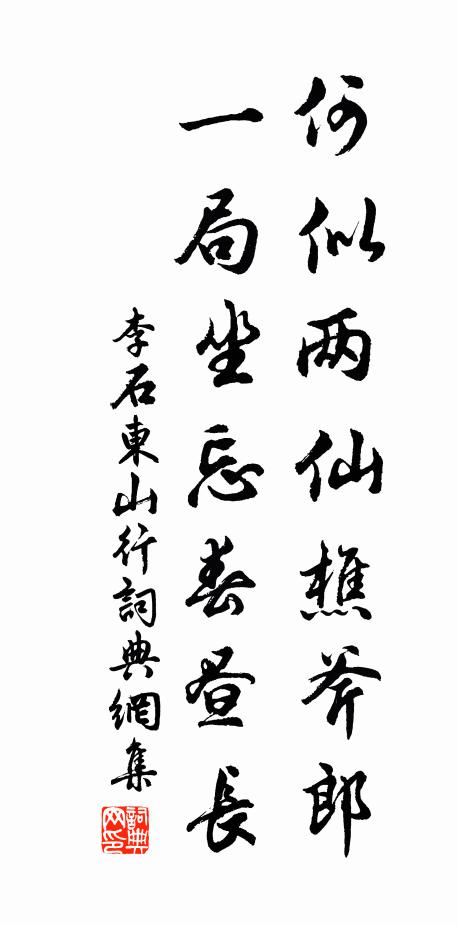 何似两仙樵斧郎
一局坐忘春昼長
李石東山行詞典網集
詞典网印